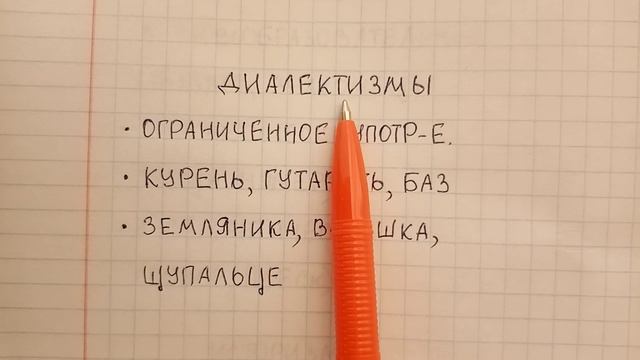 ДИАЛЕКТИЗМЫ
• ОГРАНИЧЕННОЕ УПОТР-Е.
• КУРЕНЬ, БАЗ
• ЗЕМЛЯНИКА,
ЩУПАЛЬЦЕ